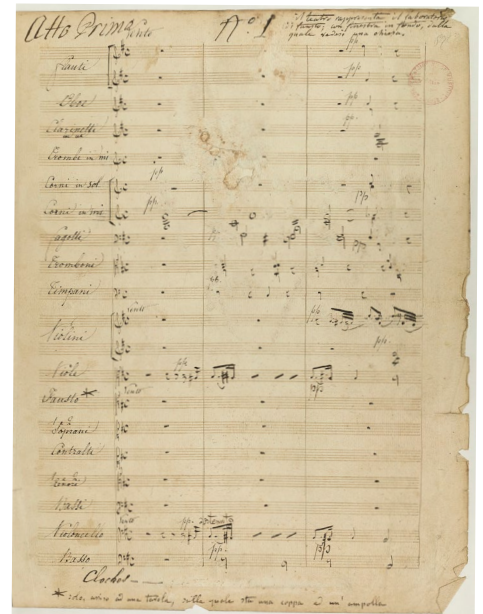 Atto Primo
N.o 1
il teatro rappresenta il laboratorio
di fausto, una finestra in fondo, dalla
quale vedesi una chiesa.
Lento
Flauti
Oboe
Clarinetti
Trombe in mi
Corni in sol
Corni in mi
Fagotti
Tromboni
Timpani
Violini
Lento
Viole
Fausto *
Lento
Soprani
Contralti
Tenori
Bassi
Violoncello
Lento
pp.
Basso
Cloches
* solo, una tavola, sulla quale sta una coppa